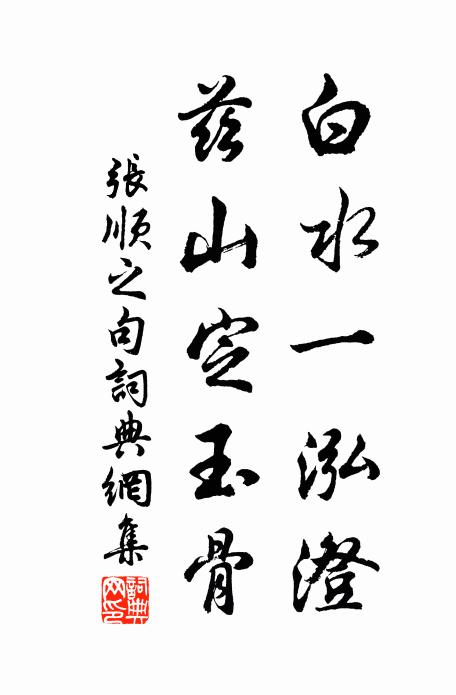 白水一泓澄
茲山定玉骨
張順之句詞典網集
詞典网印